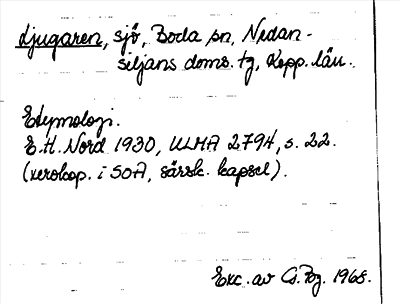 Ljugaren, sjö, Boda sn, Nedan-
siljans doms. tg, Kopp. län.
Etymologi.
E.H. Nord 1930, ULMA 2794, s. 22.
(xerokop. i SOA, särsk. kapsel).
Exc. av G. Pg. 1968.